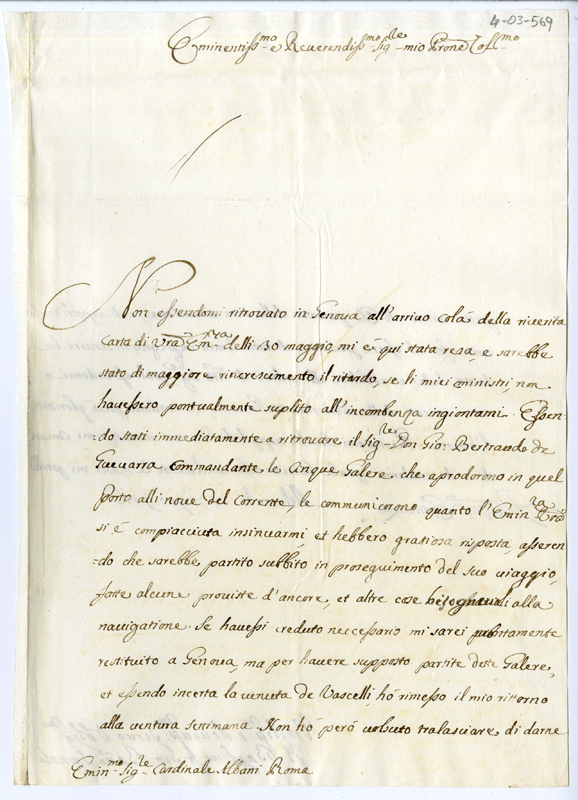 4-03-569
Eminentiss.mo e Reuerendiss.mo Sig.re mio Prone Coll.mo
Non essendomi ritrouato in Genoua all'arriuo colà della riuerita
Carta di Vra Em.nza delli 30 maggio, mi è qui stata resa, e sarebbe
stato di maggiore rincrescimento il ritardo, se li miei ministri, non
hauessero pontualmente suplito all'incombenza ingiontami. Essen-
-do stati immediatamente a ritrouare il Sig.re Don Gio: Bertrando de
Gueuarra commandante le Cinque Galere che aprodorono in quel
Porto alli noue del Corrente, le communicorono quanto l'Emin.za Vra
si è compiacciuta insinuarmi et hebbero gratiosa risposta, asseren
-do che sarebbe partito subbito in proseguimento del suo uiaggio,
fatte alcune prouiste d'ancore, et altre cose bisogneuoli alla
nauigatione. Se hauessi creduto neccessario mi sarei prontamente
restituito a Genoua, ma per hauere supposto partite dette Galere,
et essendo incerta la uenuta de Vascelli, hò rimesso il mio rittorno
alla uentura settimana. Non hò però uolsuto tralasciare di darne
Emin.mo Sig.re Cardinale Albani Roma